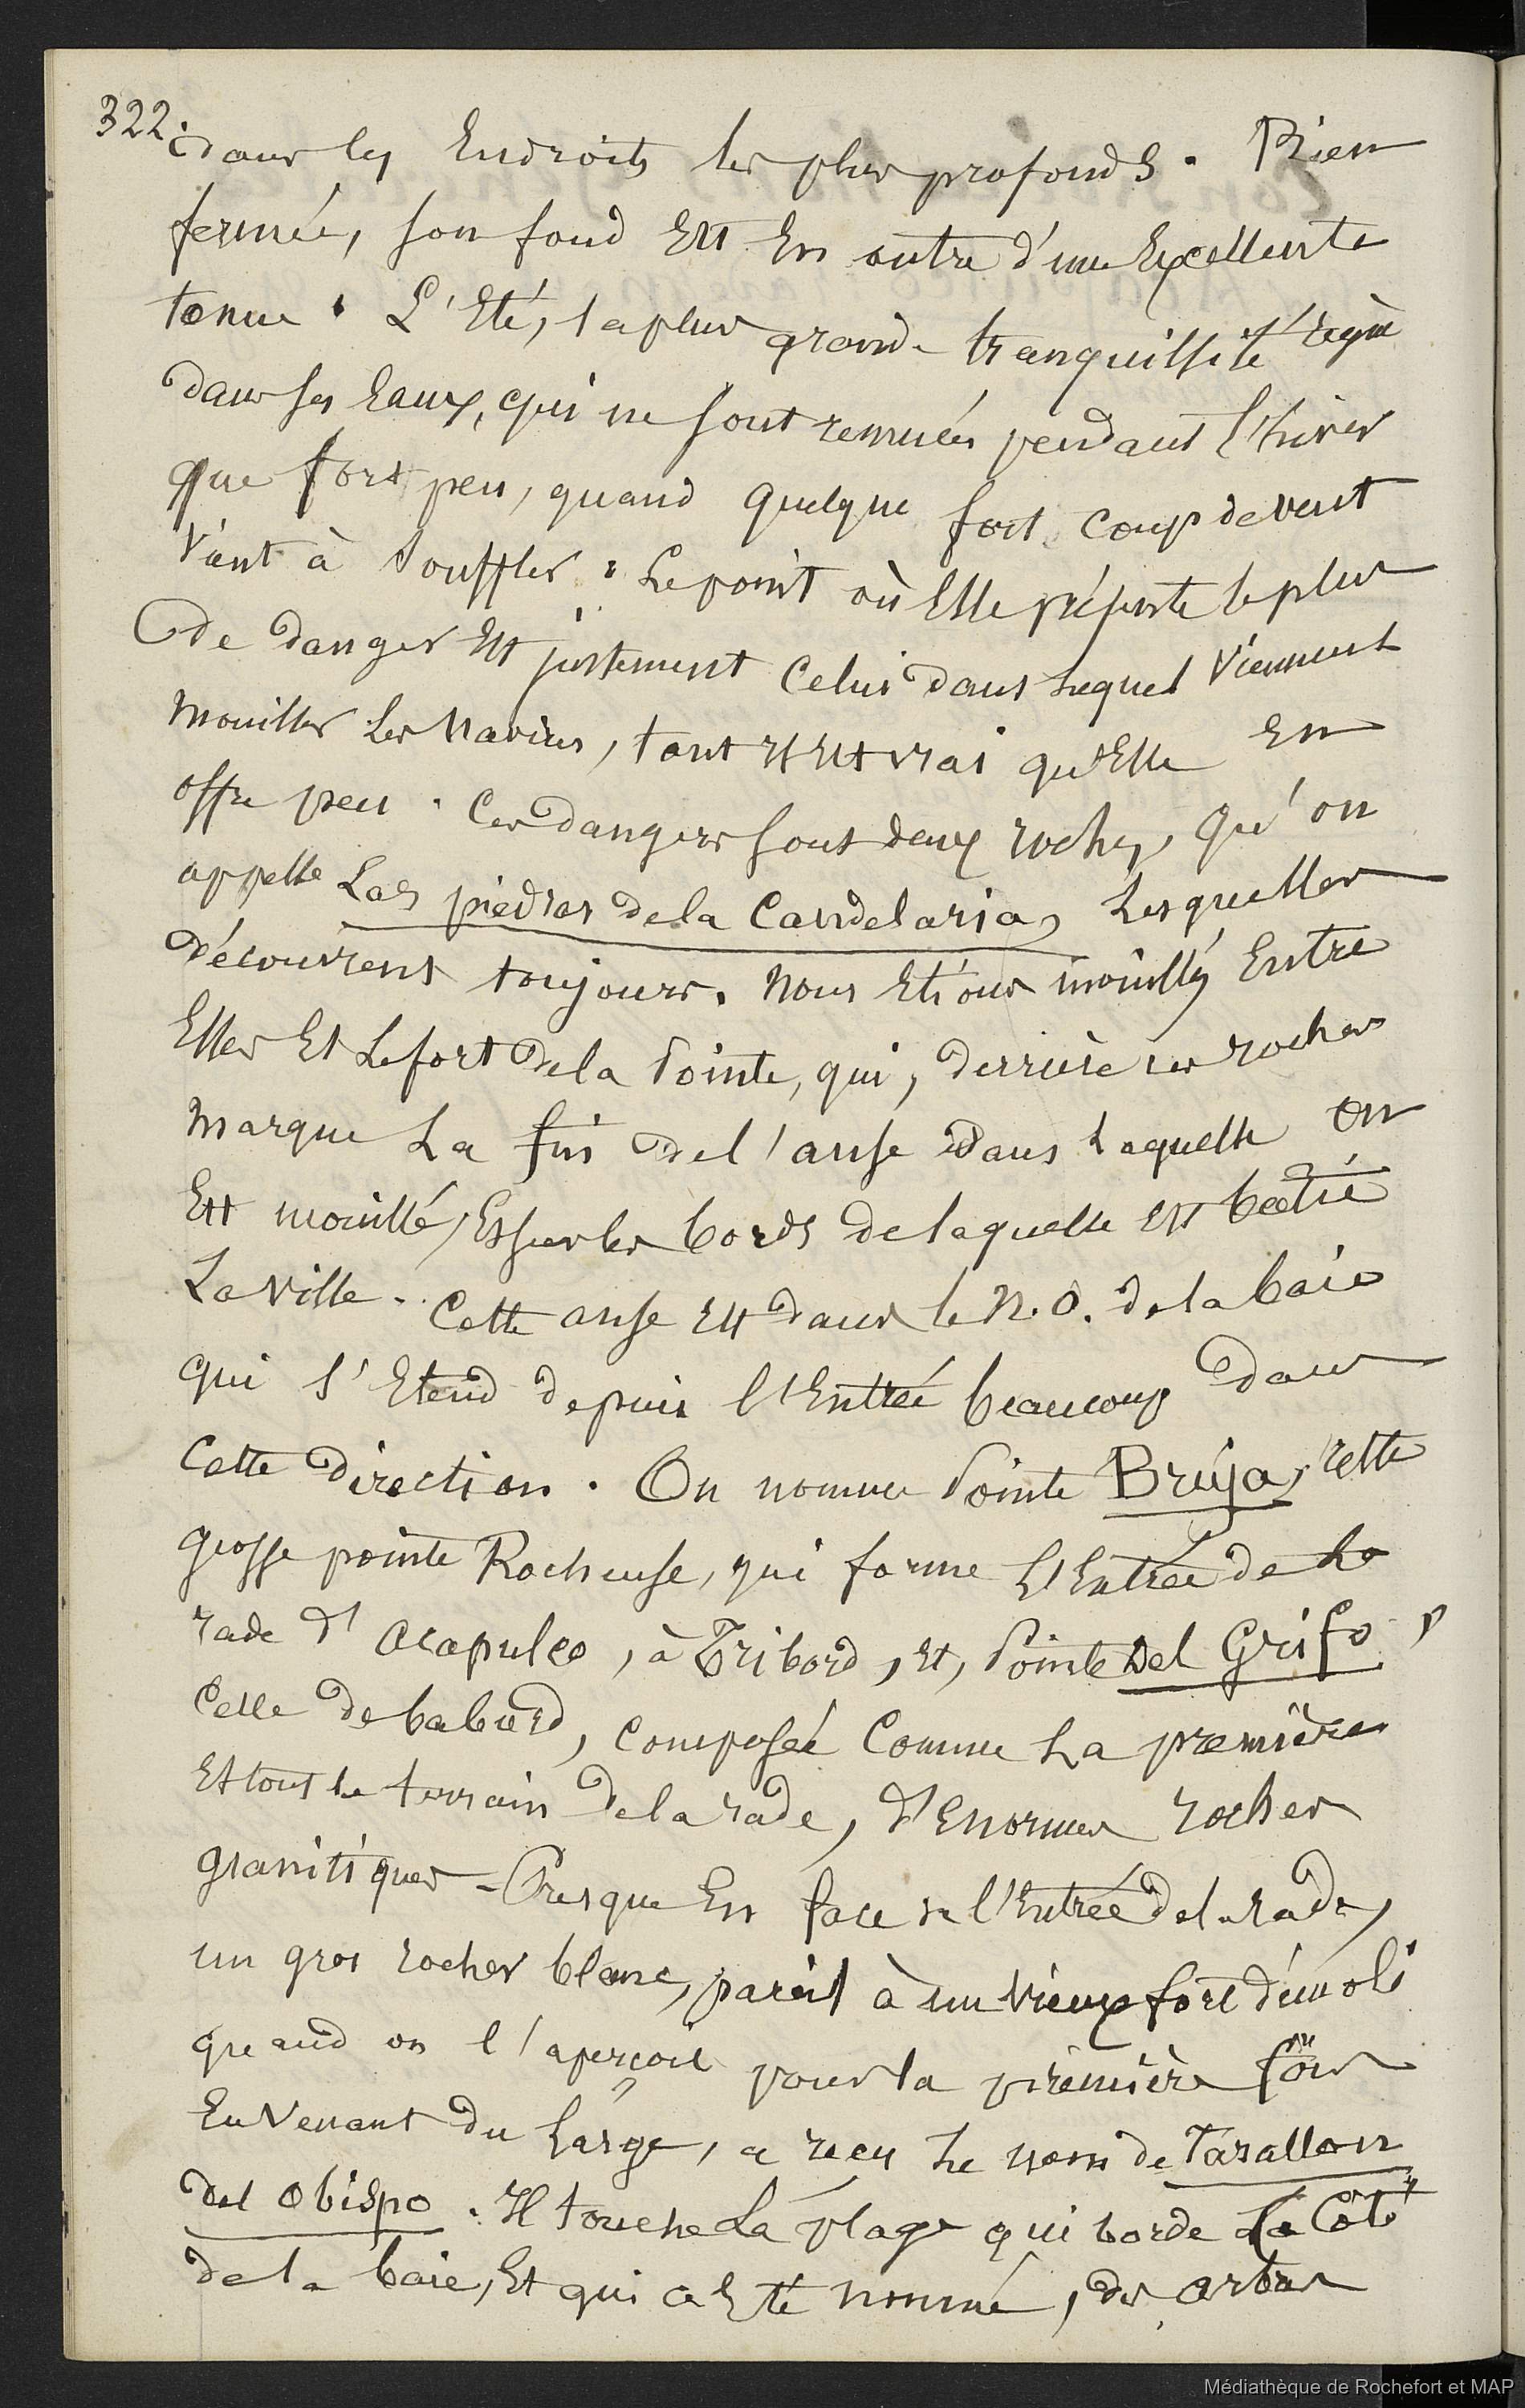 322.
dans les Endroits les plus profonds. Bien
fermée, son fond Est En outre d'une Excellente
tenue. L'Eté, la plus grande tranquillité règne
dans ses Eaux, qui ne sont remuées pendant l'hiver
que fort peu, quand quelque fort coup de vent
vient à souffler. Le point où Elle présente le plus
de danger Est justement Celui dans Lequel Viennent
Mouiller Les Navires, tant il Est vrai qu'Elle En
offre peu. Ces dangers sont deux roches, qu'on
appelle Las piedras de la Candelaria, Lesquelles
découvrent toujours. Nous Etions mouillés Entre
Elles Et Le fort de la Pointe, qui, derrière ces roches
Marque La fin de l'anse dans Laquelle on
Est mouillé, Et sur les bords de laquelle Est batie
La Ville. Cette anse Est dans le N.O. de la baie
qui s'Etend depuis l'Entrée beaucoup dans
Cette direction. On nomme Pointe Bruja, cette
grosse pointe Rocheuse, qui forme l'Entrée de La
rade d'Acapulco, à Tribord, Et, Pointe del Grifo,
Celle de babord, Composée Comme La première
Et tout le terrain de la rade, d'Enormes rochers
granitiques. Presque En face de l'Entrée de la rade,
un gros rocher blanc, pareil à un vieux fort démoli
quand on l'aperçoit pour la première fois
En Venant du Large, a reçu Le nom de Farallon
del Obispo. Il touche La plage qui borde La Côte
de la baie, Et qui a Eté nommé, des arbres
Médiathèque de Rochefort et MAP